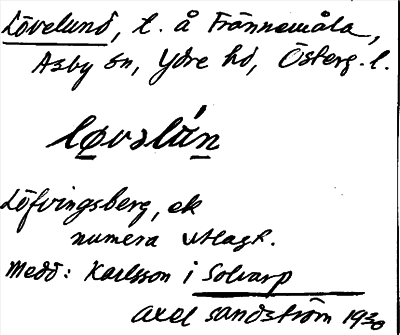 Lövelund, l. å Frännemåla,
Asby sn, Ydre hd, Österg. l.
løvəlún
Löfvingsberg, ek
numera utlagt.
Medd: Karlsson i Solvarp
Axel Sandström 1930